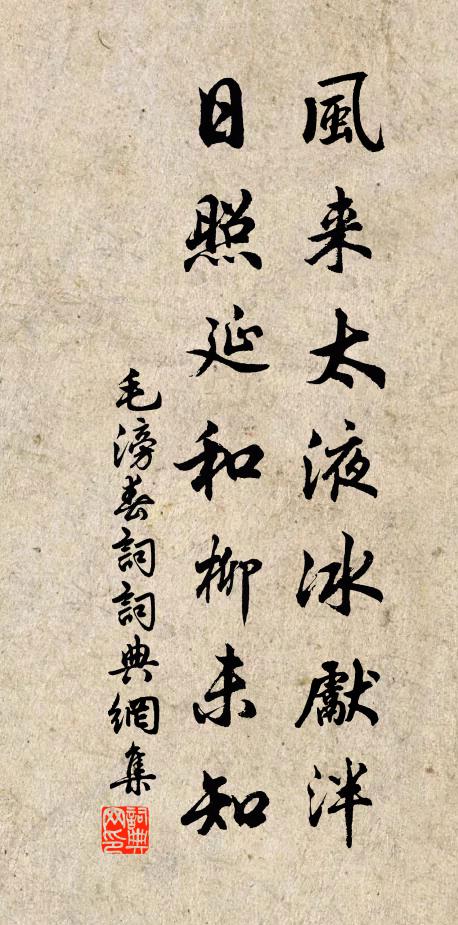 風来太液冰獻泮
日照延和柳未知
毛滂春詞詞典網集
詞典网印